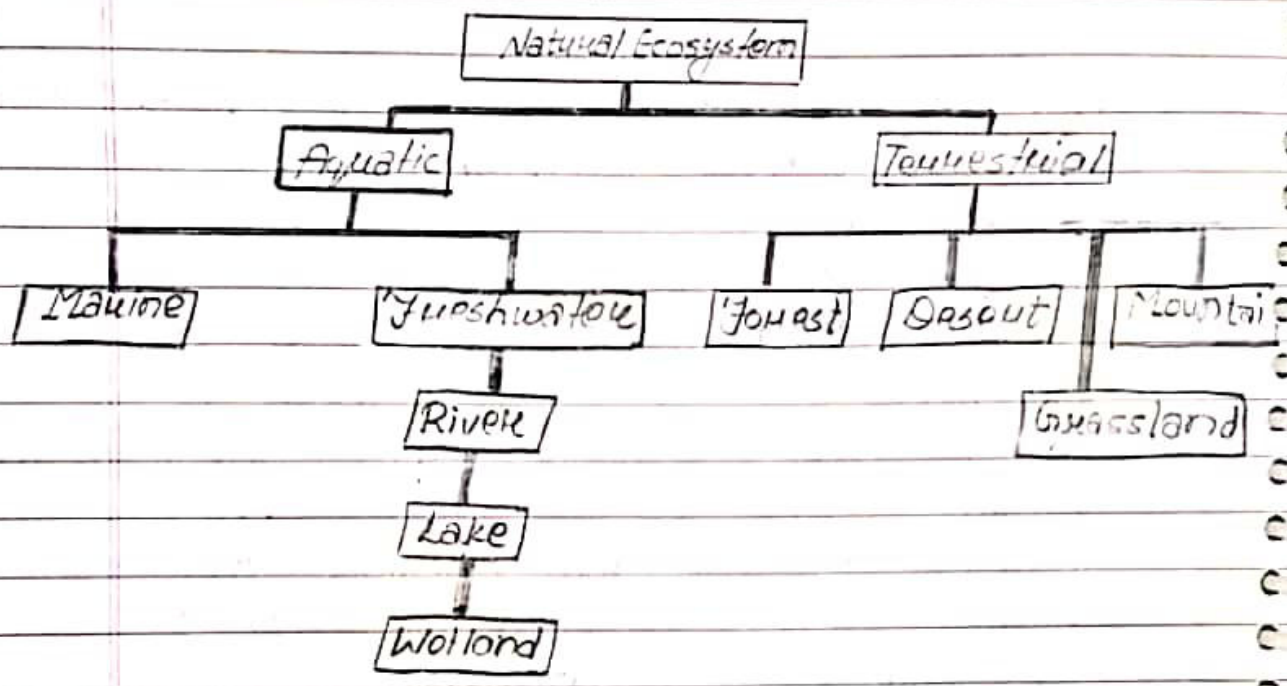 Natural Ecosystem
Aquatic Terrestrial
Marine Freshwater Forest Desert Mountai
River Grassland
Lake
Wetland